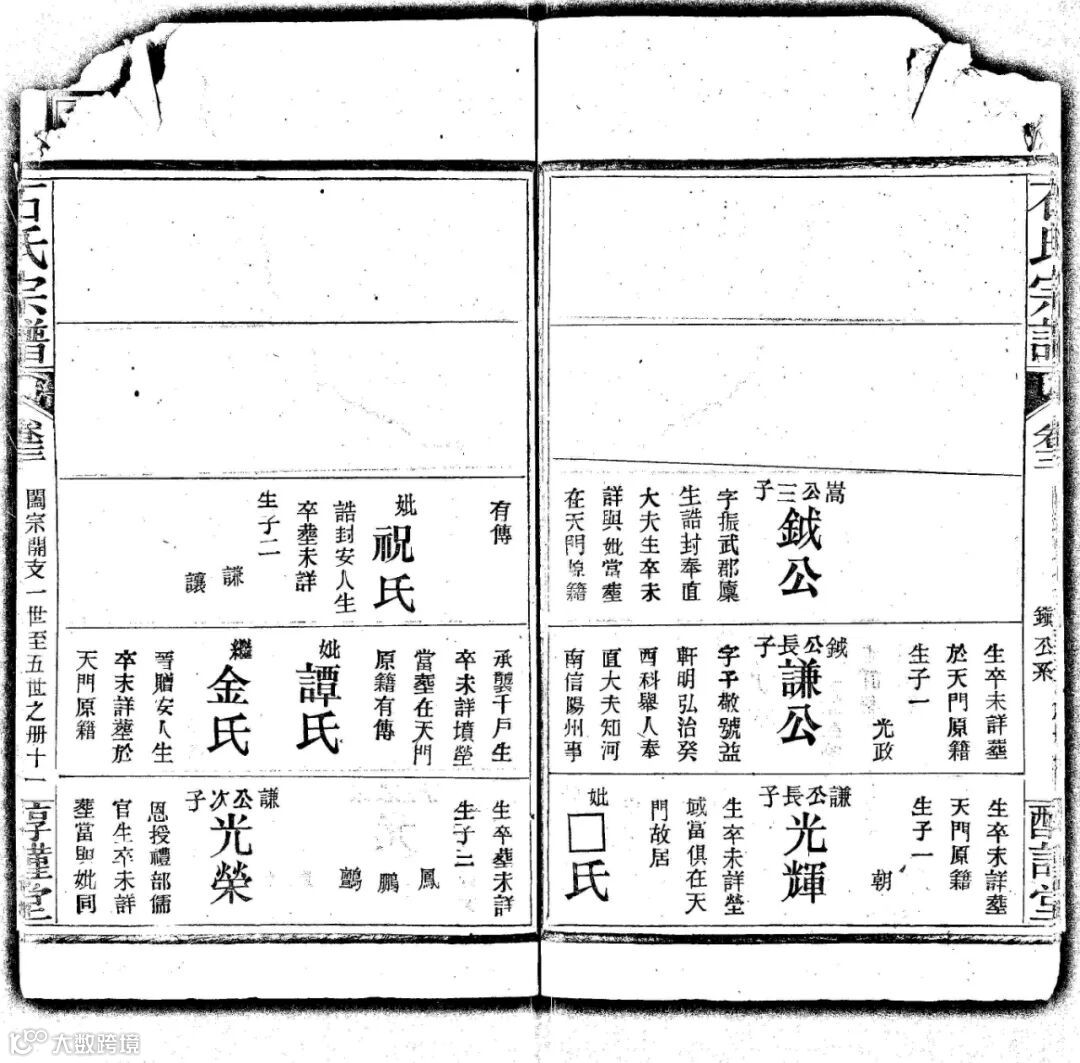 石氏宗譜
卷三
鎮公系
嵩公三子
鉞公
字振武郡廩
生誥封奉直
大夫生卒未
詳與妣當塟
在天門原籍
生卒未詳塟
於天門原籍
生子一
光政
鉞公長子
謙公
字干敬號益
軒明弘治癸
酉科舉人奉
直大夫知河
南信陽州事
生卒未詳塟
天門原籍
生子一
朝
謙公長子
光輝
生卒未詳塋
域當俱在天
門故居
妣
□氏
有傳
妣
祝氏
誥封安人生
卒塟未詳
生子二
謙
讓
承襲千戶生
卒未詳墳塋
當塟在天門
原籍有傳
妣
譚氏
繼
金氏
晉贈安人生
卒未詳塟於
天門原籍
生卒塟未詳
生子三
鳳
鵬
鸛
謙公次子
光榮
恩授禮部儒
官生卒未詳
塟當與妣同
石氏宗譜
卷三
闔宗開支一世至五世之册十一
大数跨境